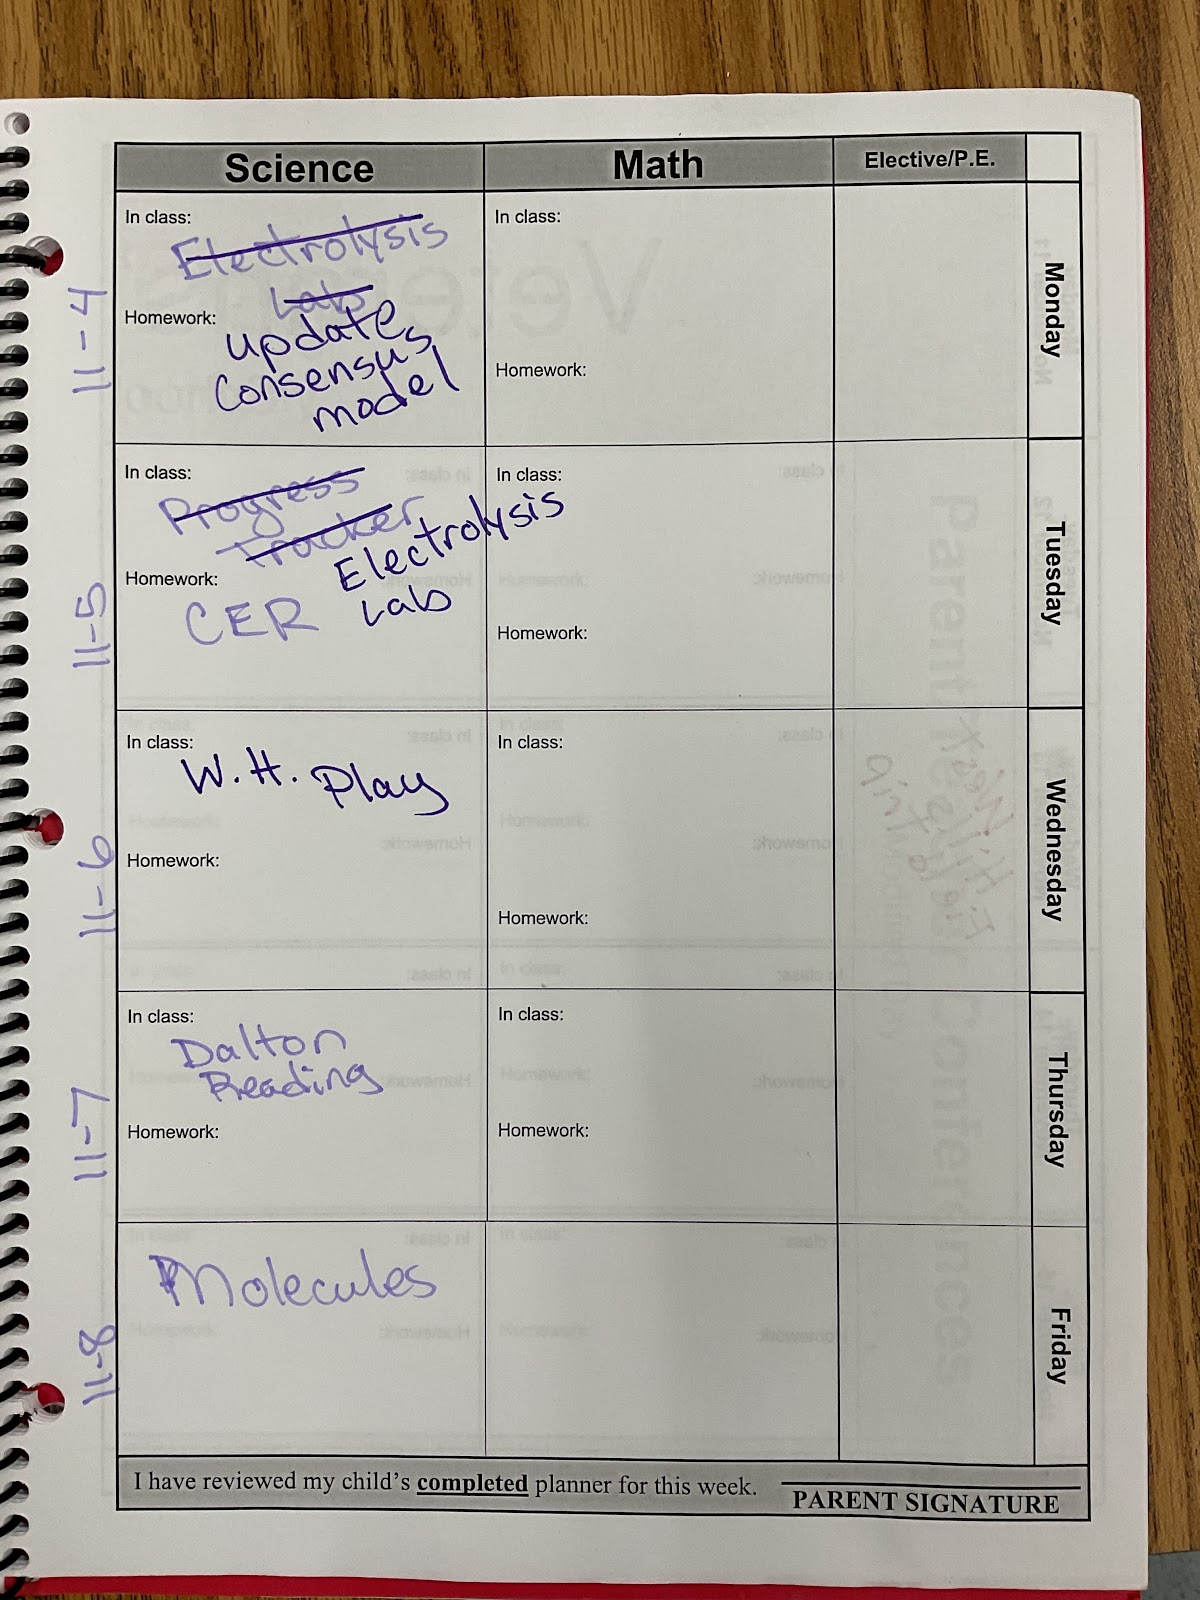 Science Math Elective/P.E.
Monday
11-4
In class:
Electrolysis
Lab
Homework:
update
Consensus
model
In class:
Homework:
Tuesday
11-5
In class:
Progress
Tracker
Electrolysis
Lab
Homework:
CER
In class:
Homework:
Wednesday
11-6
In class:
W.H. Play
Homework:
In class:
Homework:
Thursday
11-7
In class:
Dalton
Reading
Homework:
In class:
Homework:
Friday
11-8
Molecules
I have reviewed my child's completed planner for this week.
PARENT SIGNATURE